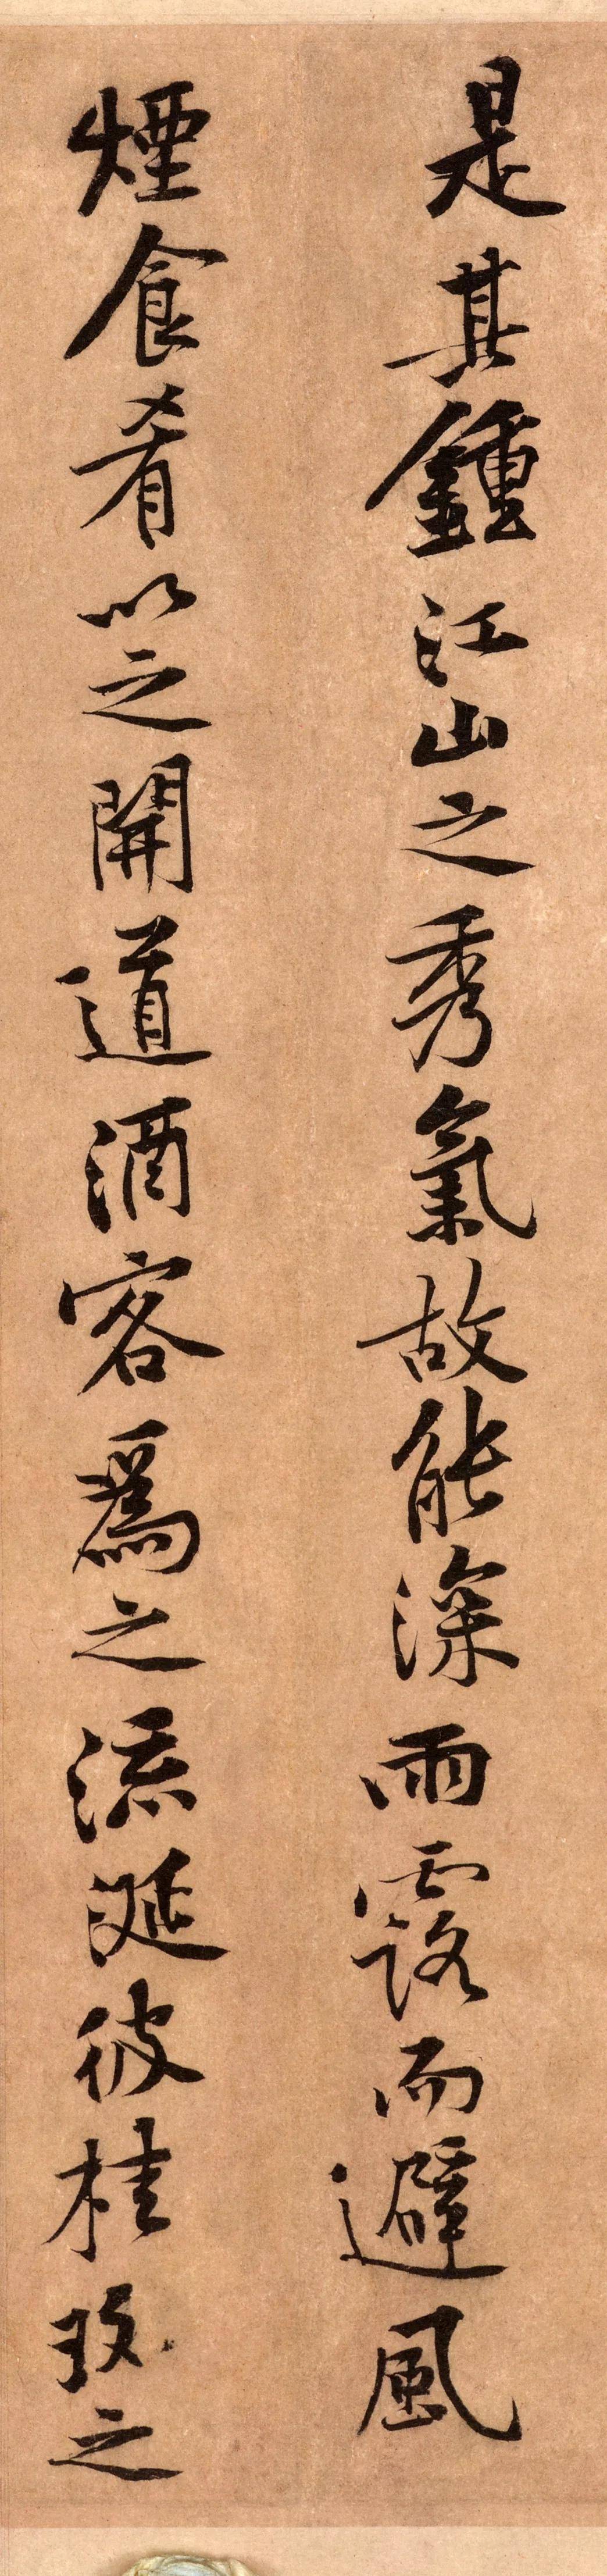 是其鍾江山之秀氣故能深雨露而避風
煙食肴以之開道酒客爲之流涎彼桂玫之